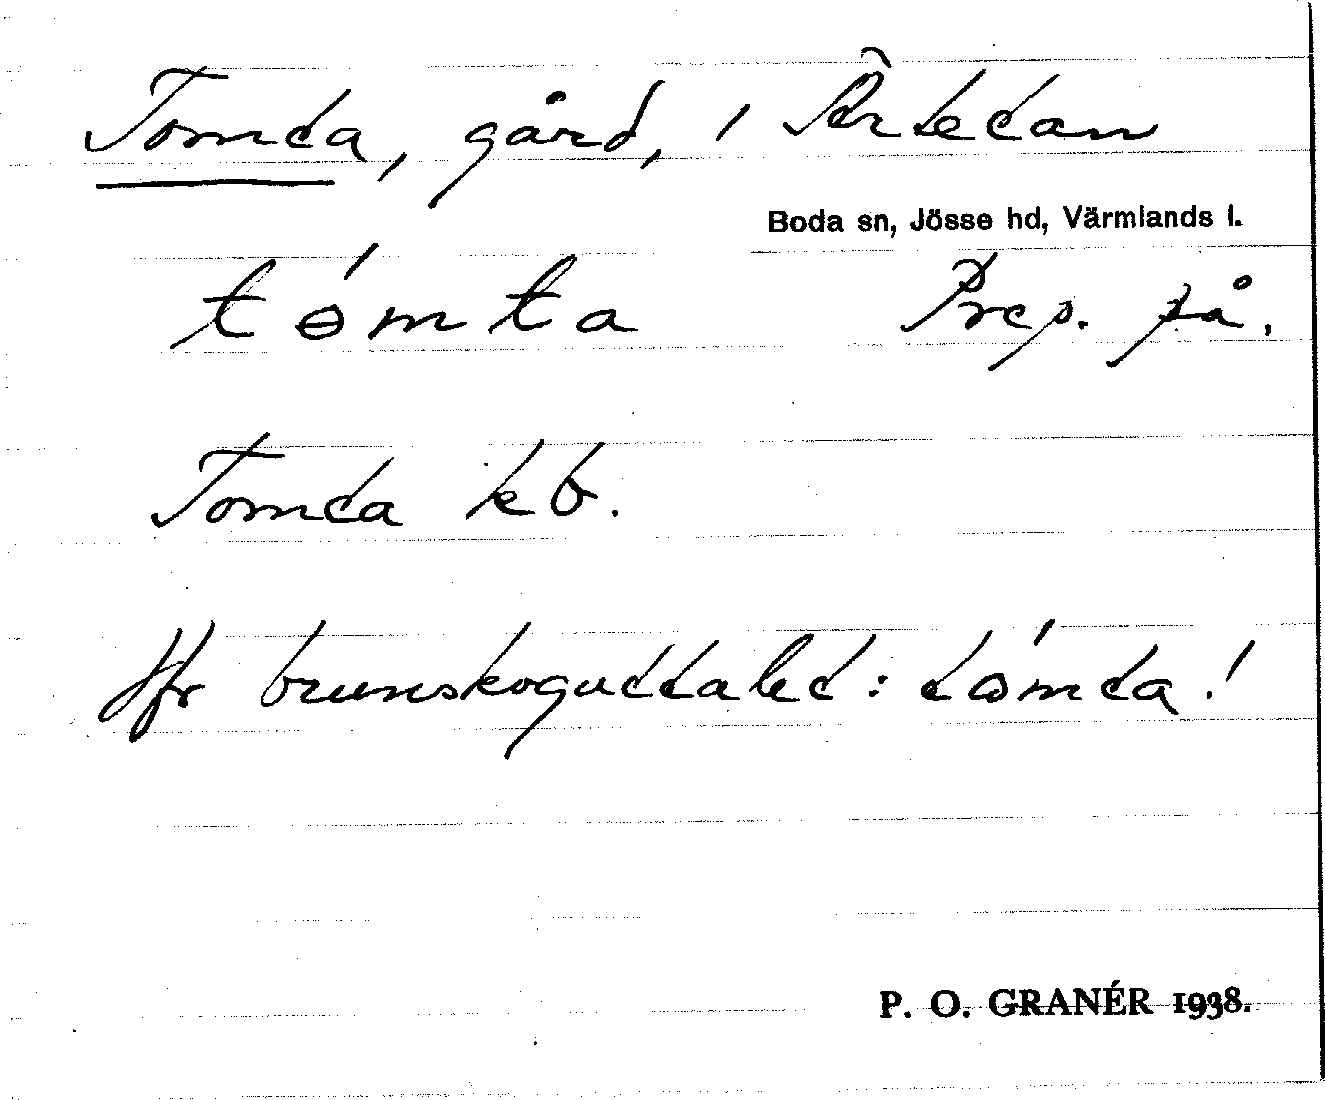 Tomta, gård, i Årtetan
Boda sn, Jösse hd, Värmlands l.
tɵ́mta Prep. på.
Tomta kb.
Jfr brunskoguttalet: tɷ́mta!
P. O. GRANÉR 1938.